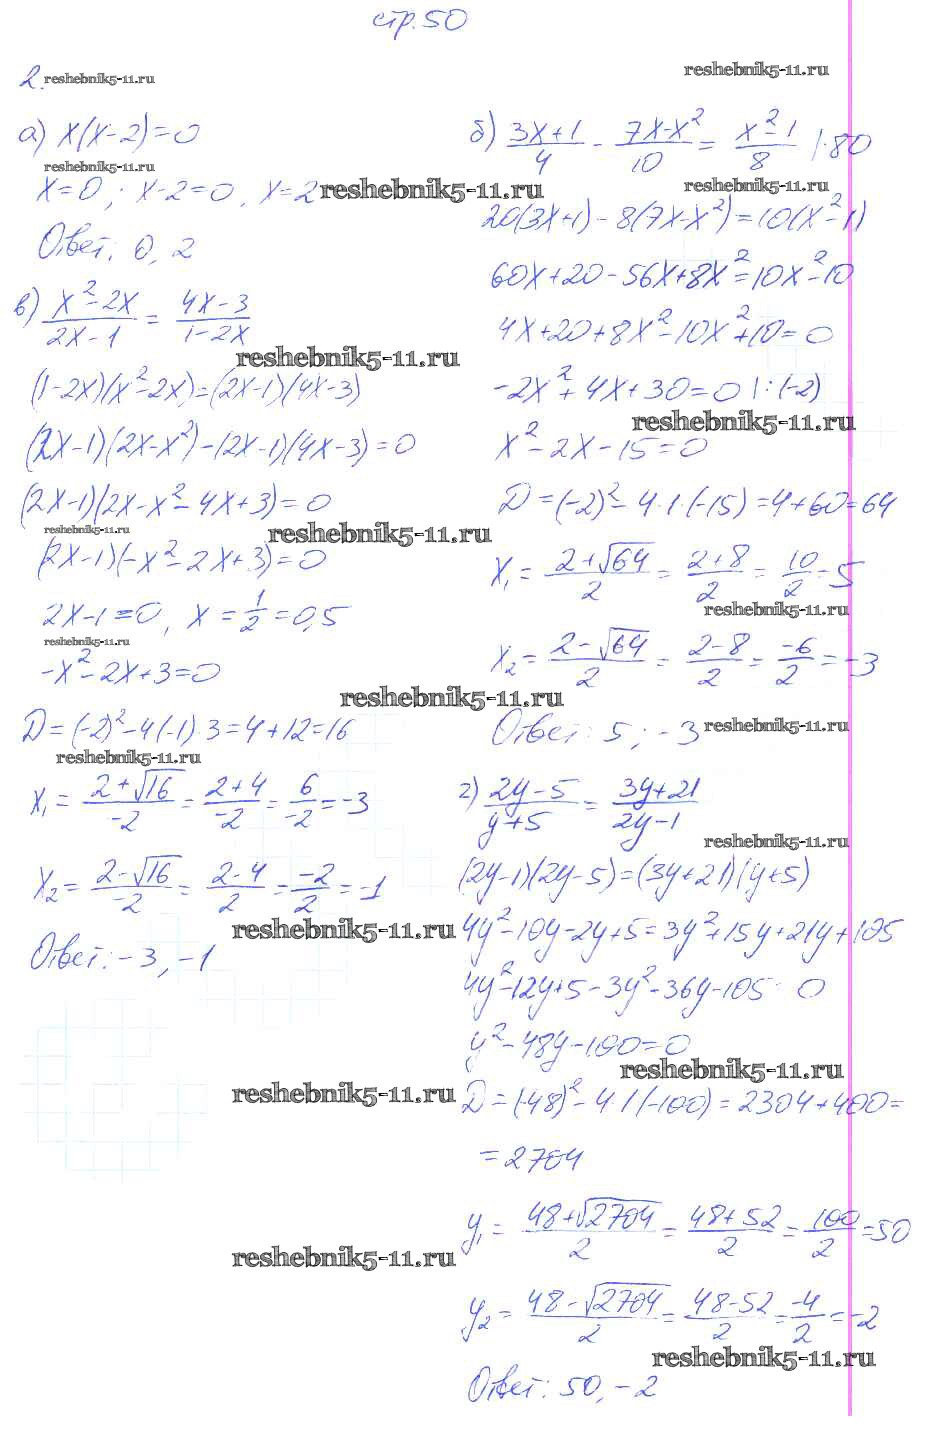 стр. 50
2. reshebnik5-11.ru
reshebnik5-11.ru
а) x(x-2)=0
reshebnik5-11.ru
x=0; x-2=0, x=2 reshebnik5-11.ru
Ответ: 0, 2
в) (x²-2x)/(2x-1) = (4x-3)/(1-2x)
reshebnik5-11.ru
(1-2x)(x²-2x)=(2x-1)(4x-3)
(2x-1)(2x-x²)-(2x-1)(4x-3)=0
(2x-1)(2x-x²-4x+3)=0
reshebnik5-11.ru reshebnik5-11.ru
(2x-1)(-x²-2x+3)=0
2x-1=0, x=1/2=0,5
reshebnik5-11.ru
-x²-2x+3=0
reshebnik5-11.ru
D=(-2)²-4(-1)·3=4+12=16
reshebnik5-11.ru
x₁=(2+√16)/-2=(2+4)/-2=6/-2=-3
x₂=(2-√16)/-2=(2-4)/2=-2/2=-1
reshebnik5-11.ru
Ответ: -3, -1
reshebnik5-11.ru
reshebnik5-11.ru
б) (3x+1)/4 - (7x-x²)/10 = (x²-1)/8 |·80
reshebnik5-11.ru
20(3x+1)-8(7x-x²)=10(x²-1)
60x+20-56x+8x²=10x²-10
4x+20+8x²-10x²+10=0
-2x²+4x+30=0 |:(-2)
reshebnik5-11.ru
x²-2x-15=0
D=(-2)²-4·1·(-15)=4+60=64
x₁=(2+√64)/2=(2+8)/2=10/2=5
reshebnik5-11.ru
x₂=(2-√64)/2=(2-8)/2=-6/2=-3
Ответ: 5; -3 reshebnik5-11.ru
г) (2y-5)/(y+5) = (3y+21)/(2y-1)
reshebnik5-11.ru
(2y-1)(2y-5)=(3y+21)(y+5)
4y²-10y-2y+5=3y²+15y+21y+105
4y²-12y+5-3y²-36y-105 0
y²-48y-100=0
reshebnik5-11.ru
D=(-48)²-4·1(-100)=2304+400=
=2704
y₁=(48+√2704)/2=(48+52)/2=100/2=50
y₂=(48-√2704)/2=(48-52)/2=-4/2=-2
reshebnik5-11.ru
Ответ: 50, -2